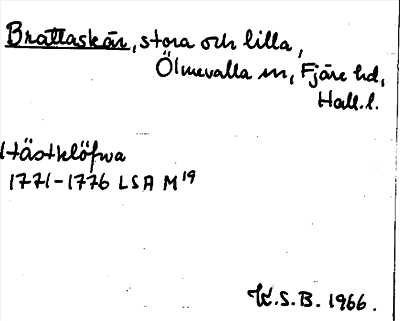 Brattaskär, stora och lilla,
Ölmevalla sn, Fjäre hd,
Hall. l.
Hästklöfwa
1771-1776 LSA M19
K.S.B. 1966.